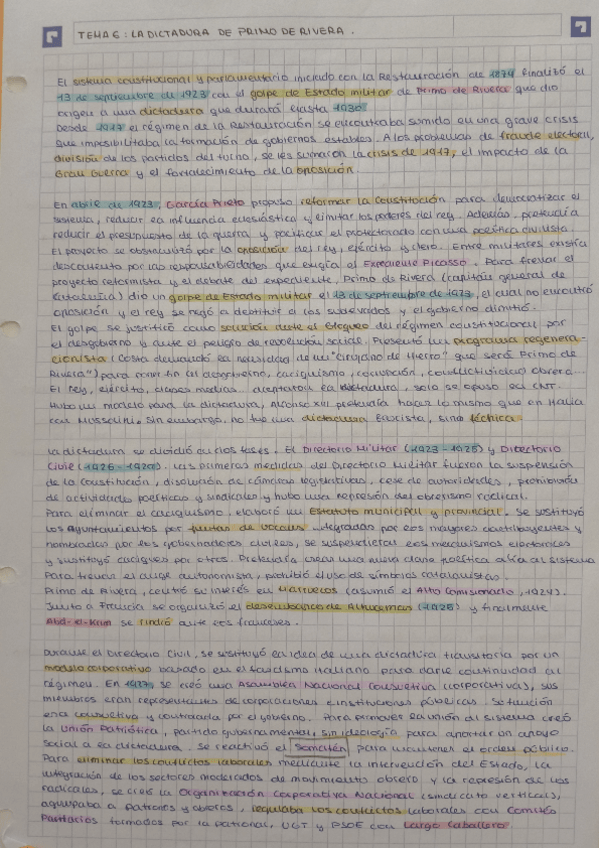 TEMA 6: LA DICTADURA DE PRIMO DE RIVERA.
El sistema constitucional y parlamentario iniciado con la Restauración de 1874 finalizó el
13 de septiembre de 1923 con el golpe de Estado militar de Primo de Rivera que dio
origen a una dictadura que durará hasta 1930
Desde 1917 el régimen de la Restauración se encontraba sumido en una grave crisis
que imposibilitaba la formación de gobiernos estables. A los problemas de fraude electoral,
división de los partidos del turno, se les sumaron la crisis de 1917, el impacto de la
Gran Guerra y el fortalecimiento de la oposición.
En abril de 1923, García Prieto propuso reformar la Constitución para democratizar el
sistema, reducir la influencia eclesiástica y limitar los poderes del rey. Además, pretendía
reducir el presupuesto de la guerra y pacificar el protectorado con una política civilista
El proyecto se obstaculizó por la oposición del rey, ejército y clero. Entre militares existía
descontento por las responsabilidades que exigía el Expediente Picasso. Para frenar el
proyecto reformista y el debate del expediente, Primo de Rivera (capitán general de
Cataluña) dio un golpe de Estado militar el 13 de septiembre de 1923, el cual no encontró
oposición y el rey se negó a destituir a los sublevados y el gobierno dimitió.
El golpe se justificó como solución ante el bloqueo del régimen constitucional por
el desgobierno y ante el peligro de revolución social. Presentó un programa regenera-
cionista (Costa demandó la necesidad de un "cirujano de hierro" que será Primo de
Rivera") para poner fin al desgobierno, caciquismo, corrupción, conflictividad obrera...
El rey, ejército, clases medias aceptaron la dictadura, solo se opuso la CNT.
Hubo un modelo para la dictadura, Alfonso XIII pretendía hacer lo mismo que en Italia
con Mussolini. Sin embargo, no fue una dictadura fascista, sino técnica.
La dictadura se dividió en dos fases. El Directorio Militar (1923-1925) y Directorio
Civil (1926-1929). Las primeras medidas del Directorio Militar fueron la suspensión
de la Constitución, disolución de cámaras legislativas, cese de autoridades, prohibición
de actividades políticas y sindicales y hubo una represión del obrerismo radical.
Para eliminar el caciquismo, elaboró un estatuto municipal y provincial. Se sustituyó
los Ayuntamientos por juntas de vocales integradas por los mayores contribuyentes y
nombrados por los gobernadores civiles, se suspendieron los mecanismos electorales
y sustituyó caciques por otros. Pretendía crear una nueva clase política afín al sistema
Para frenar el auge autonomista, prohibió el uso de símbolos catalanistas.
Primo de Rivera, centró su interés en Marruecos (asumió el Alto Comisionado, 1924).
Junto a Francia se organizó el desembarco de Alhucemas (1925) y finalmente
Abd-el-Krim se rindió ante los franceses.
Durante el Directorio Civil, se sustituyó la idea de una dictadura transitoria por un
modelo corporativo basado en el fascismo italiano para darle continuidad al
régimen. En 1927, se creó una Asamblea Nacional Consultiva (corporativas), sus
miembros eran representantes de corporaciones e instituciones públicas. Su función
era consultiva y controlada por el gobierno. Para promover la unión al sistema creó
la Unión Patriótica, partido gubernamental, sin ideología para aportar un apoyo
social a la dictadura. Se reactivó el Somatén para mantener el orden público.
Para eliminar los conflictos laborales mediante la intervención del Estado, la
integración de los sectores moderados de movimiento obrero y la represión de los
radicales, se creó la Organización Corporativa Nacional (sindicato vertical),
agrupaba a patronos y obreros, regulaba los conflictos laborales con Comités
Paritarios formados por la patronal, UGT y PSOE con Largo Caballero.